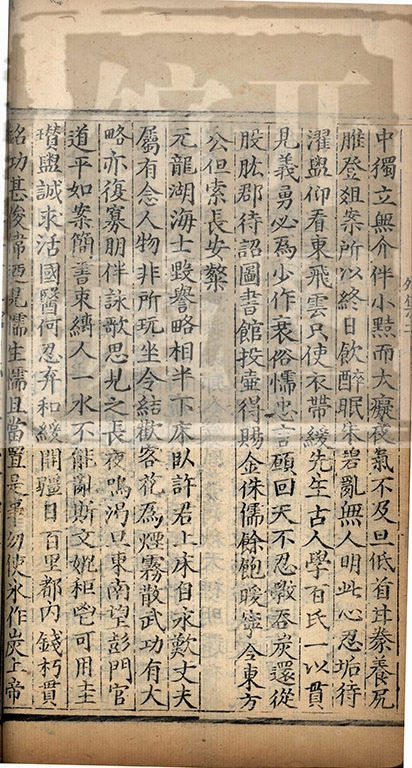 中獨立無介伴小黠而大癡夜氣不及旦低首耳豢養尻
脽登俎案所以終日飲醉眠朱碧亂無人明此心忍垢待
濯盥仰看東飛雲只使衣帶緩先生古人學百氏一以貫
見義勇必為少作衰俗懦忠言願回天不忍歌吞炭還從
股肱郡待詔圖書館投壺得賜金侏儒餘飽暖寧令東方
公但索長安粲
元龍湖海士毀譽略相半下床臥許君上床自永歎丈夫
屬有念人物非所玩坐令結歡客花為煙霧散武功有大
略亦復寡朋伴詠歌思見之長夜鳴渴旦東南望彭門官
道平如案簡書束縛人一水不能亂斯文媲秬鬯可用圭
瓚盥誠求活國醫何忍弃和緩開疆日百里都內錢朽貫
銘功甚俊偉廼見儒生懦且當置是事勿使氷作炭上帝